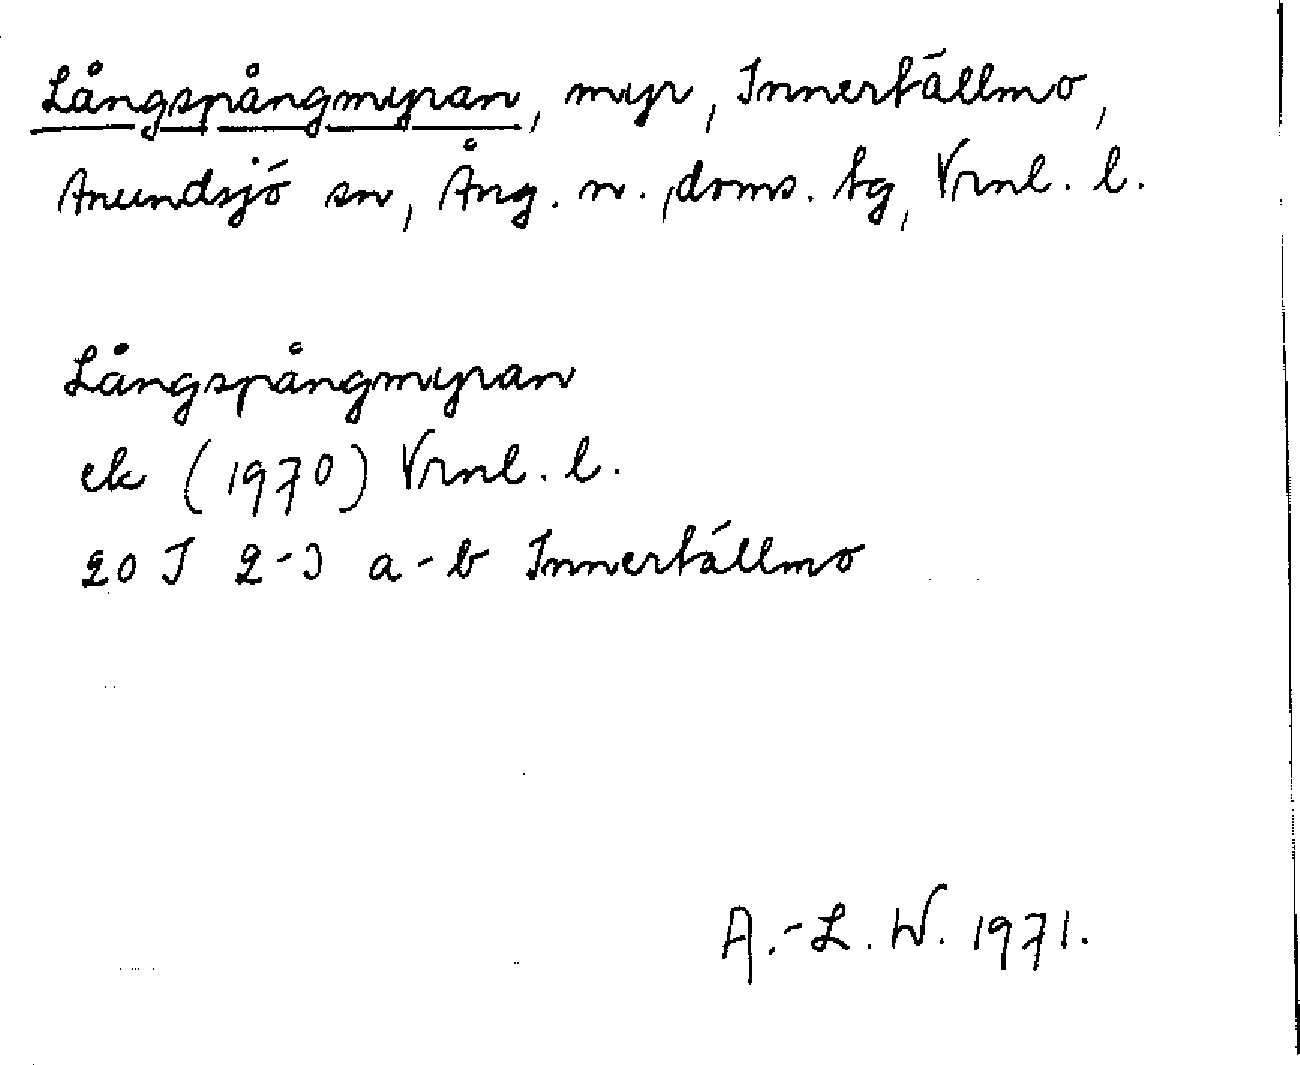 Långspångmyran, myr, Innertällmo,
Anundsjö sn, Ång. n. doms. tg, Vrnl. l.
Långspångmyran
ek (1970) Vrnl. l.
20 J 2-3 a-b Innertällmo
A.-L. W. 1971.